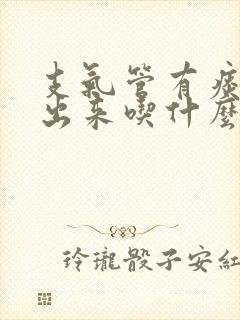 支氣管有痰
出来喫什麼
玲瓏骰子安紅